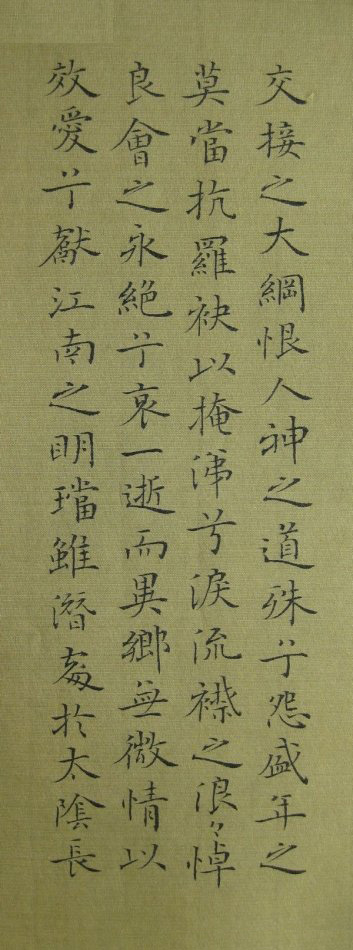 交接之大綱恨人神之道殊兮怨盛年之
莫當抗羅袂以掩涕兮淚流襟之浪々悼
良會之永絕兮哀一逝而異鄉無微情以
效愛兮獻江南之明璫雖潛處於太陰長